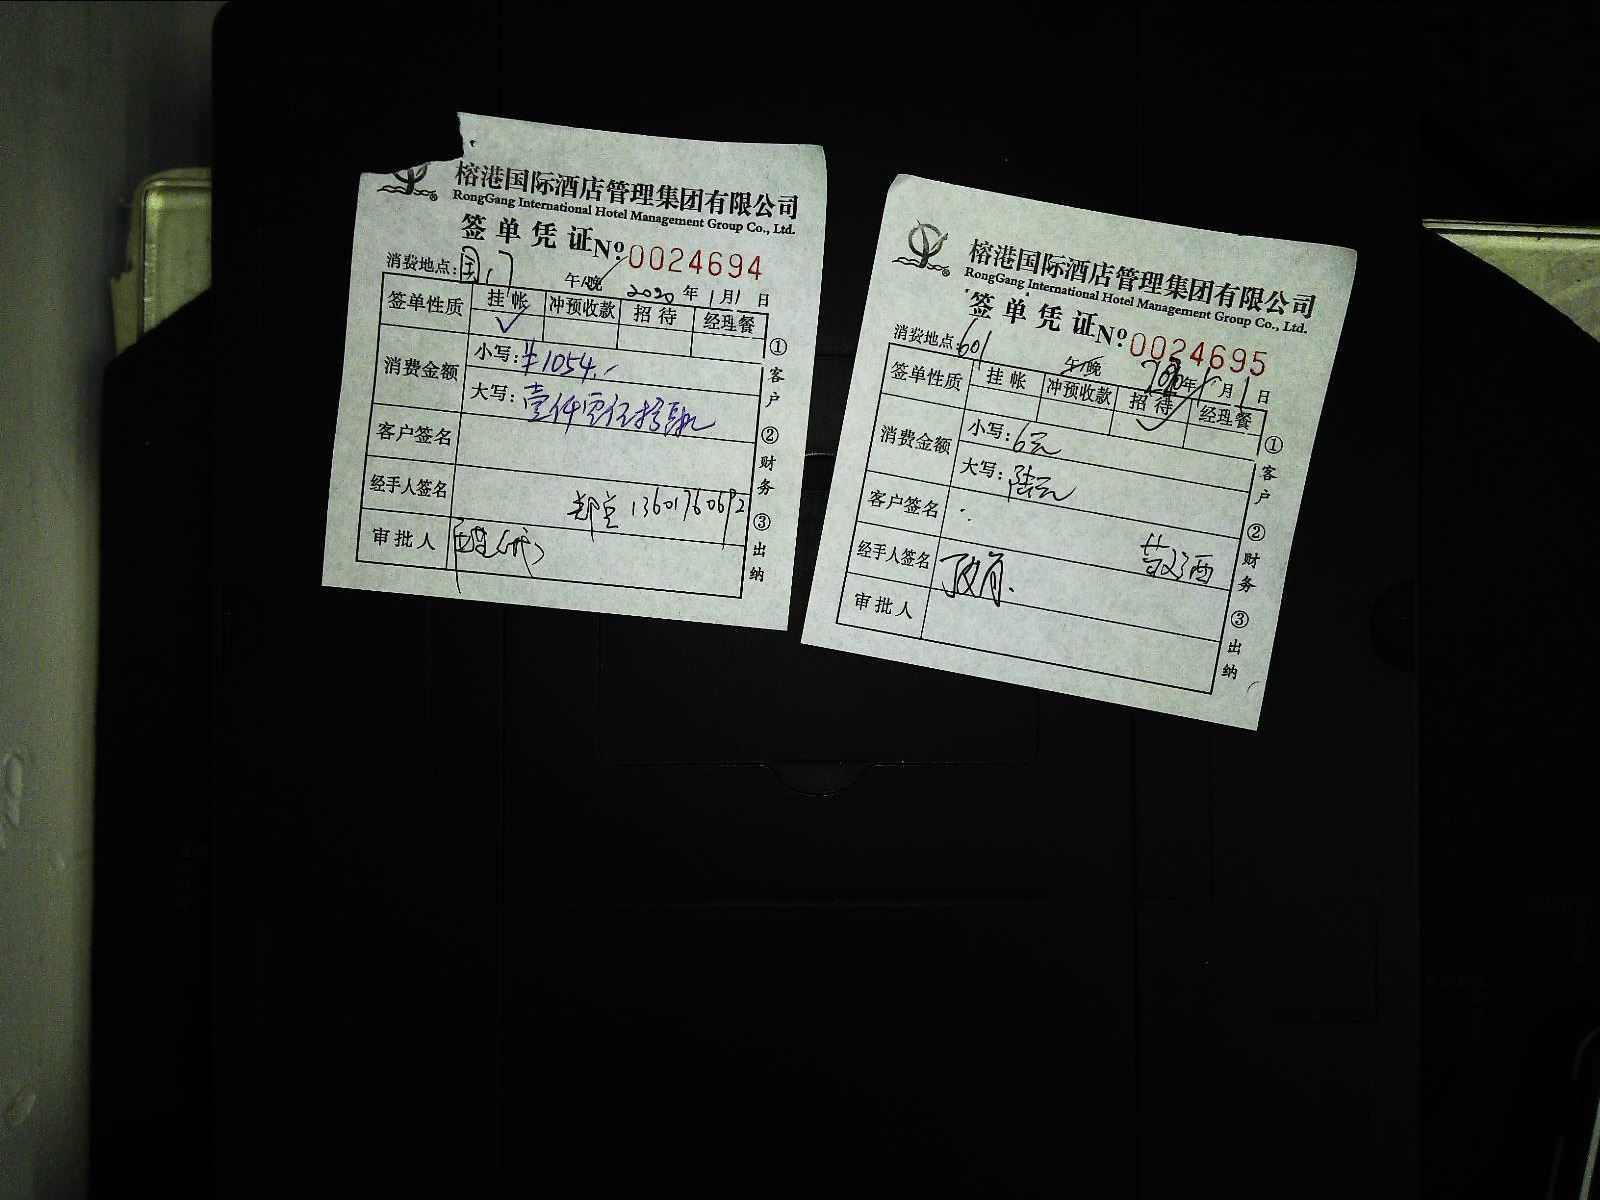 榕港国际酒店管理集团有限公司
RongGang International Hotel Management Group Co., Ltd.
签单凭证 No. 0024694
消费地点：
午/晚 2020年1月1日
签单性质 挂帐 冲预收款 招待 经理餐
✓
消费金额 小写：¥1054.-
大写：壹仟零伍拾肆
客户签名
经手人签名 13601760692
审批人
①客户 ②财务 ③出纳
榕港国际酒店管理集团有限公司
RongGang International Hotel Management Group Co., Ltd.
签单凭证 No. 0024695
消费地点：601
午/晚 2020年1月1日
签单性质 挂帐 冲预收款 招待 经理餐
✓
消费金额 小写：6元
大写：陆元
客户签名
经手人签名 敬酒
审批人
①客户 ②财务 ③出纳